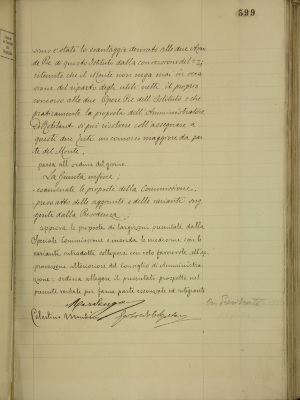 599
sono e stato lo svantaggio derivato alle due Opere
Pie di questo Istituto dalla conversione del
ritenuto che il Monte non nega mai in occa
sione del riparto degli utili netti il proprio
concorso alle due Opere Pie dell'Istituto e che
praticamente la proposta dell'Amministratore
si può risolvere coll'assegnare a
queste due un concorso maggiore da par
te del Monte,
passa all'ordine del giorno.
La Giunta infine;
esaminate le proposte della Commissione,
preso atto delle aggiunte e delle varianti
dalla Presidenza;
approva le proposte di largizioni presentate dalla
Speciale Commissione e manda le medesime con le
varianti introdotte sottoporre con voto favorevole all'ap
provazione ulteriore del Consiglio di Amministra
zione; ordina allegarsi il presentato prospetto nel
presente verbale per farne parte essenziale ed integrante
Celestino